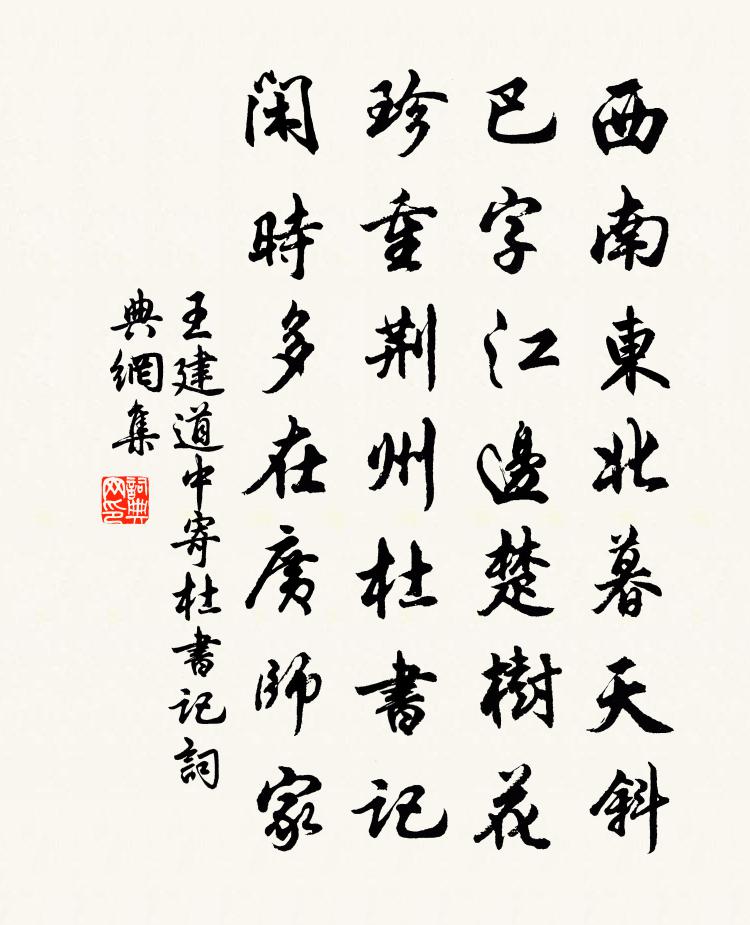 西南東北暮天斜
巴字江邊楚樹花
珍重荆州杜書記
閑時多在廣師家
王建道中寄杜書記詞
典網集
詞典网印